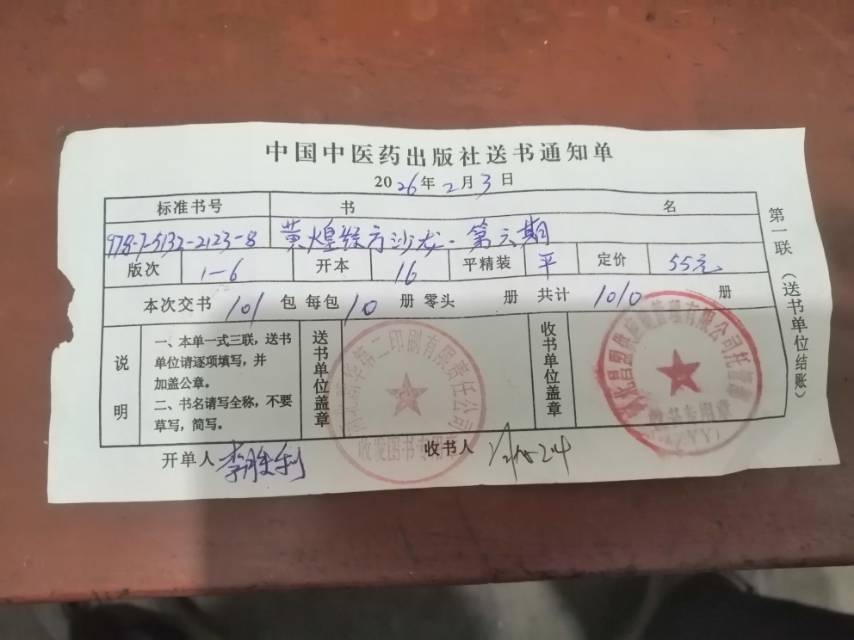 中国中医药出版社送书通知单
2026年2月3日
标准书号 书 名
978-7-5132-2123-8 黄煌经方沙龙·第六期
版次 1-6 开本 16 平精装 平 定价 55元
本次交书 101 包 每包 10 册 零头 册 共计 1010 册
说明
一、本单一式三联，送书
单位请逐项填写，并
加盖公章。
二、书名请写全称，不要
草写，简写。
送书单位盖章
第二印刷有限责任公司
收书单位盖章
开单人 李胜利
收书人
第一联（送书单位结账）